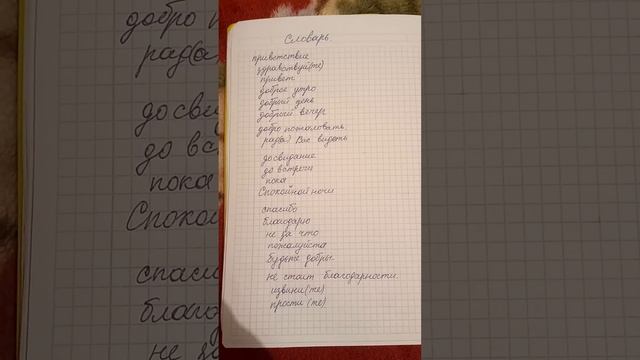 Словарь.
приветствие
здравствуй(те)
привет
доброе утро
добрый день
добрый вечер
добро пожаловать.
рад(а) Вас видеть
досвидание
до встречи
пока
Спокойной ночи
спасибо
благодарю
не за что
пожалуйста
будьте добры.
не стоит благодарности.
извини(те)
прости (те)